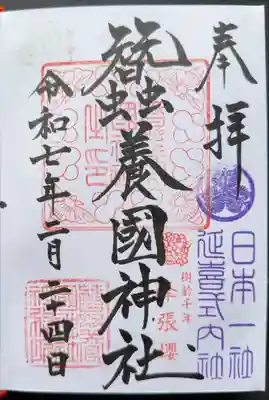 奉拝
日本一社
延喜式内社
樹齢千年
峯張櫻
蠶養國神社
令和七年二月二十四日